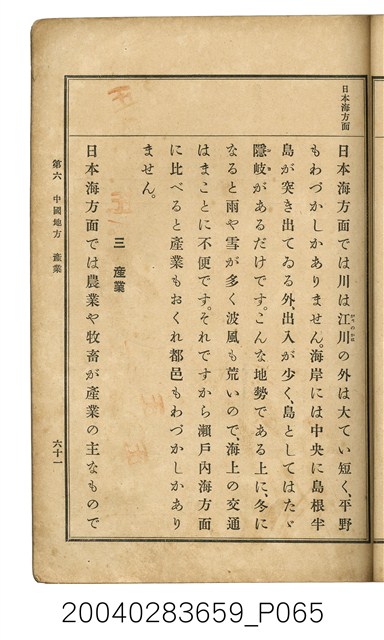 日本海方面
日本海方面では川は江川の外は大てい短く、平野
もわづかしかありません。海岸には中央に島根半
島が突き出てゐる外、出入が少く、島としてはたゞ
隱岐があるだけです。こんな地勢である上に、冬に
なると雨や雪が多く波風も荒いので、海上の交通
はまことに不便です。それですから瀬戸內海方面
に比べると產業もおくれ都邑もわづかしかあり
ません。
三 產業
日本海方面では農業や牧畜が產業の主なもので
第六 中國地方 產業
六十一
20040283659_P065